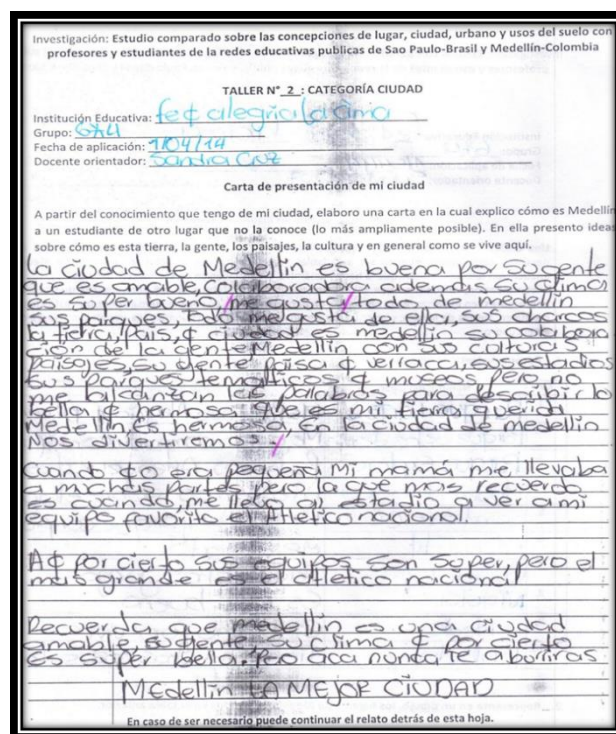 Investigación: Estudio comparado sobre las concepciones de lugar, ciudad, urbano y usos del suelo con
profesores y estudiantes de la redes educativas publicas de Sao Paulo-Brasil y Medellín-Colombia
TALLER N°_2_: CATEGORÍA CIUDAD
Institución Educativa: fe ¢ alegria la cima
Grupo: 6¢4
Fecha de aplicación: 1/04/14
Docente orientador: Sandra Cruz
Carta de presentación de mi ciudad
A partir del conocimiento que tengo de mi ciudad, elaboro una carta en la cual explico cómo es Medellín
a un estudiante de otro lugar que no la conoce (lo más ampliamente posible). En ella presento ideas
sobre cómo es esta tierra, la gente, los paisajes, la cultura y en general como se vive aquí.
La ciudad de Medellin es buena por su gente
que es amable, colaboradora ademas su clima
es super bueno / me gusta / todo de medellin
sus parques, todo me gusta de ella, sus charcos
la tierra, país, ¢ ciudad es medellin su colabora
ción de la gente Medellin con sus culturas
paisajes, su gente paisa ¢ verraca, sus estadios
sus parques tematicos ¢ museos pero no
me alcanzan las palabras para describir lo
bella ¢ hermosa que es mi tierra querida
Medellin, es hermosa, En la ciudad de medellin
Nos divertiremos /
Cuando ¢o era pequeña Mi mamá me llevaba
a muchas partes pero la que mas recuerdo
es cuando, me llevo al estadio a ver a mi
equipo favorito el Atletico nacional.
A¢ por cierto sus equipos son super, pero el
mas grande es el atletico nacional
Recuerda que medellin es una ciudad
amable, su gente, su clima ¢ por cierto
es super bella. Pero aca nunca te aburriras.
MEdellin LA MEjOR CIUDAD
En caso de ser necesario puede continuar el relato detrás de esta hoja.